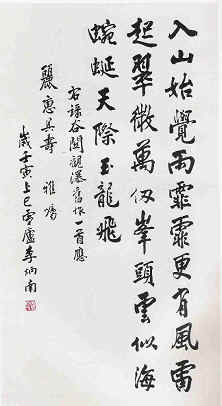 入山始覺雨霏霏更有風雷
起翠微萬仞峯頭雲似海
蜿蜒天際玉龍飛
右錄谷關觀瀑舊作一首應
麗惠具壽 雅屬
歲壬寅上巳雪廬李炳南